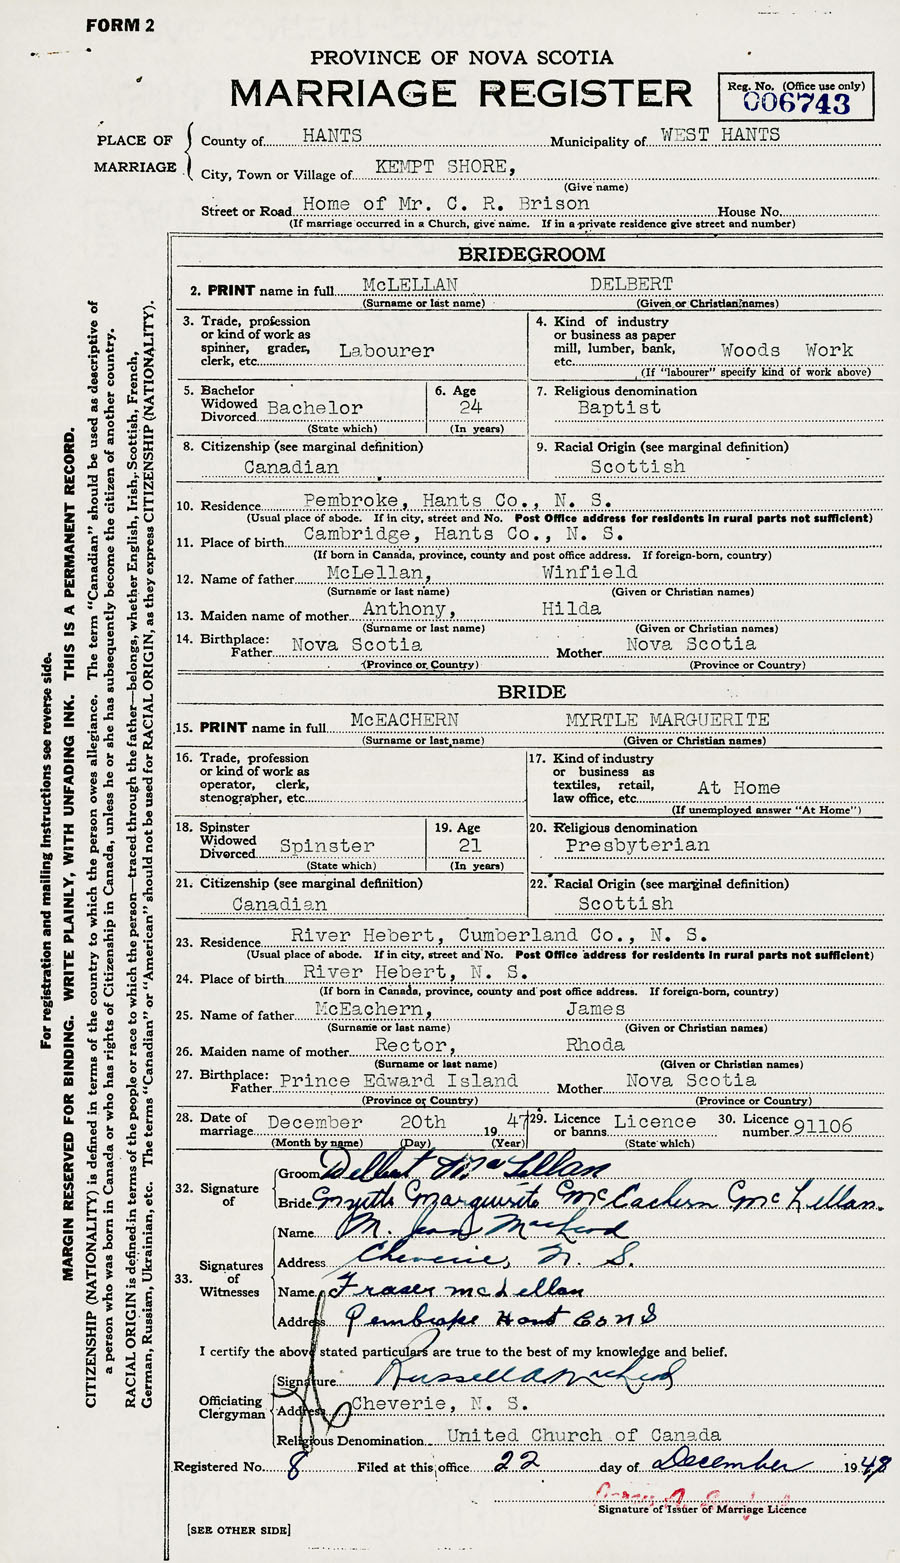 FORM 2
PROVINCE OF NOVA SCOTIA
MARRIAGE REGISTER
Reg. No. (Office use only)
006743
PLACE OF MARRIAGE
County of HANTS Municipality of WEST HANTS
City, Town or Village of KEMPT SHORE,
(Give name)
Street or Road Home of Mr. C. R. Brison House No.
(If marriage occurred in a Church, give name. If in a private residence give street and number)
BRIDEGROOM
2. PRINT name in full McLELLAN DELBERT
(Surname or last name) (Given or Christian names)
3. Trade, profession or kind of work as spinner, grader, clerk, etc. Labourer
4. Kind of industry or business as paper mill, lumber, bank, etc. Woods Work
(If "labourer" specify kind of work above)
5. Bachelor Widowed Divorced Bachelor
(State which)
6. Age 24
(In years)
7. Religious denomination Baptist
8. Citizenship (see marginal definition) Canadian
9. Racial Origin (see marginal definition) Scottish
10. Residence Pembroke, Hants Co., N. S.
(Usual place of abode. If in city, street and No. Post Office address for residents in rural parts not sufficient)
11. Place of birth Cambridge, Hants Co., N. S.
(If born in Canada, province, county and post office address. If foreign-born, country)
12. Name of father McLellan, Winfield
(Surname or last name) (Given or Christian names)
13. Maiden name of mother Anthony, Hilda
(Surname or last name) (Given or Christian names)
14. Birthplace: Father Nova Scotia Mother Nova Scotia
(Province or Country) (Province or Country)
BRIDE
15. PRINT name in full McEACHERN MYRTLE MARGUERITE
(Surname or last name) (Given or Christian names)
16. Trade, profession or kind of work as operator, clerk, stenographer, etc.
17. Kind of industry or business as textiles, retail, law office, etc. At Home
(If unemployed answer "At Home")
18. Spinster Widowed Divorced Spinster
(State which)
19. Age 21
(In years)
20. Religious denomination Presbyterian
21. Citizenship (see marginal definition) Canadian
22. Racial Origin (see marginal definition) Scottish
23. Residence River Hebert, Cumberland Co., N. S.
(Usual place of abode. If in city, street and No. Post Office address for residents in rural parts not sufficient)
24. Place of birth River Hebert, N. S.
(If born in Canada, province, county and post office address. If foreign-born, country)
25. Name of father McEachern, James
(Surname or last name) (Given or Christian names)
26. Maiden name of mother Rector, Rhoda
(Surname or last name) (Given or Christian names)
27. Birthplace: Father Prince Edward Island Mother Nova Scotia
(Province or Country) (Province or Country)
28. Date of marriage December 20th 1947
(Month by name) (Day) (Year)
29. Licence or banns Licence
(State which)
30. Licence number 91106
32. Signature of
Groom Delbert McLellan
Bride Myrtle Marguerite McEachern McLellan.
33. Signatures of Witnesses
Name M. Jean MacLeod
Address Cheverie, N. S.
Name Fraser McLellan
Address Pembroke Hant Co N S
I certify the above stated particulars are true to the best of my knowledge and belief.
Officiating Clergyman
Signature Russell A MacLeod
Address Cheverie, N. S.
Religious Denomination United Church of Canada
Registered No. 8 Filed at this office 22 day of December 19
Signature of Issuer of Marriage Licence
[SEE OTHER SIDE]
For registration and mailing instructions see reverse side.
MARGIN RESERVED FOR BINDING. WRITE PLAINLY, WITH UNFADING INK. THIS IS A PERMANENT RECORD.
CITIZENSHIP (NATIONALITY) is defined in terms of the country to which the person owes allegiance. The term "Canadian" should be used as descriptive of
a person who was born in Canada or who has rights of Citizenship in Canada, unless he or she has subsequently become the citizen of another country.
RACIAL ORIGIN is defined in terms of the people or race to which the person—traced through the father—belongs, whether English, Irish, Scottish, French,
German, Russian, Ukrainian, etc. The terms "Canadian" or "American" should not be used for RACIAL ORIGIN, as they express CITIZENSHIP (NATIONALITY).